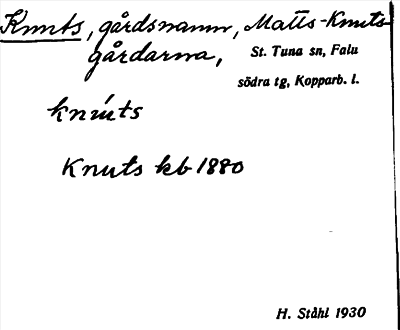 Knuts, gårdsnamn, Matts-Knuts-
gårdarna, St. Tuna sn, Falu
södra tg, Kopparb. l.
knúts
Knuts kb 1880
H. Ståhl 1930